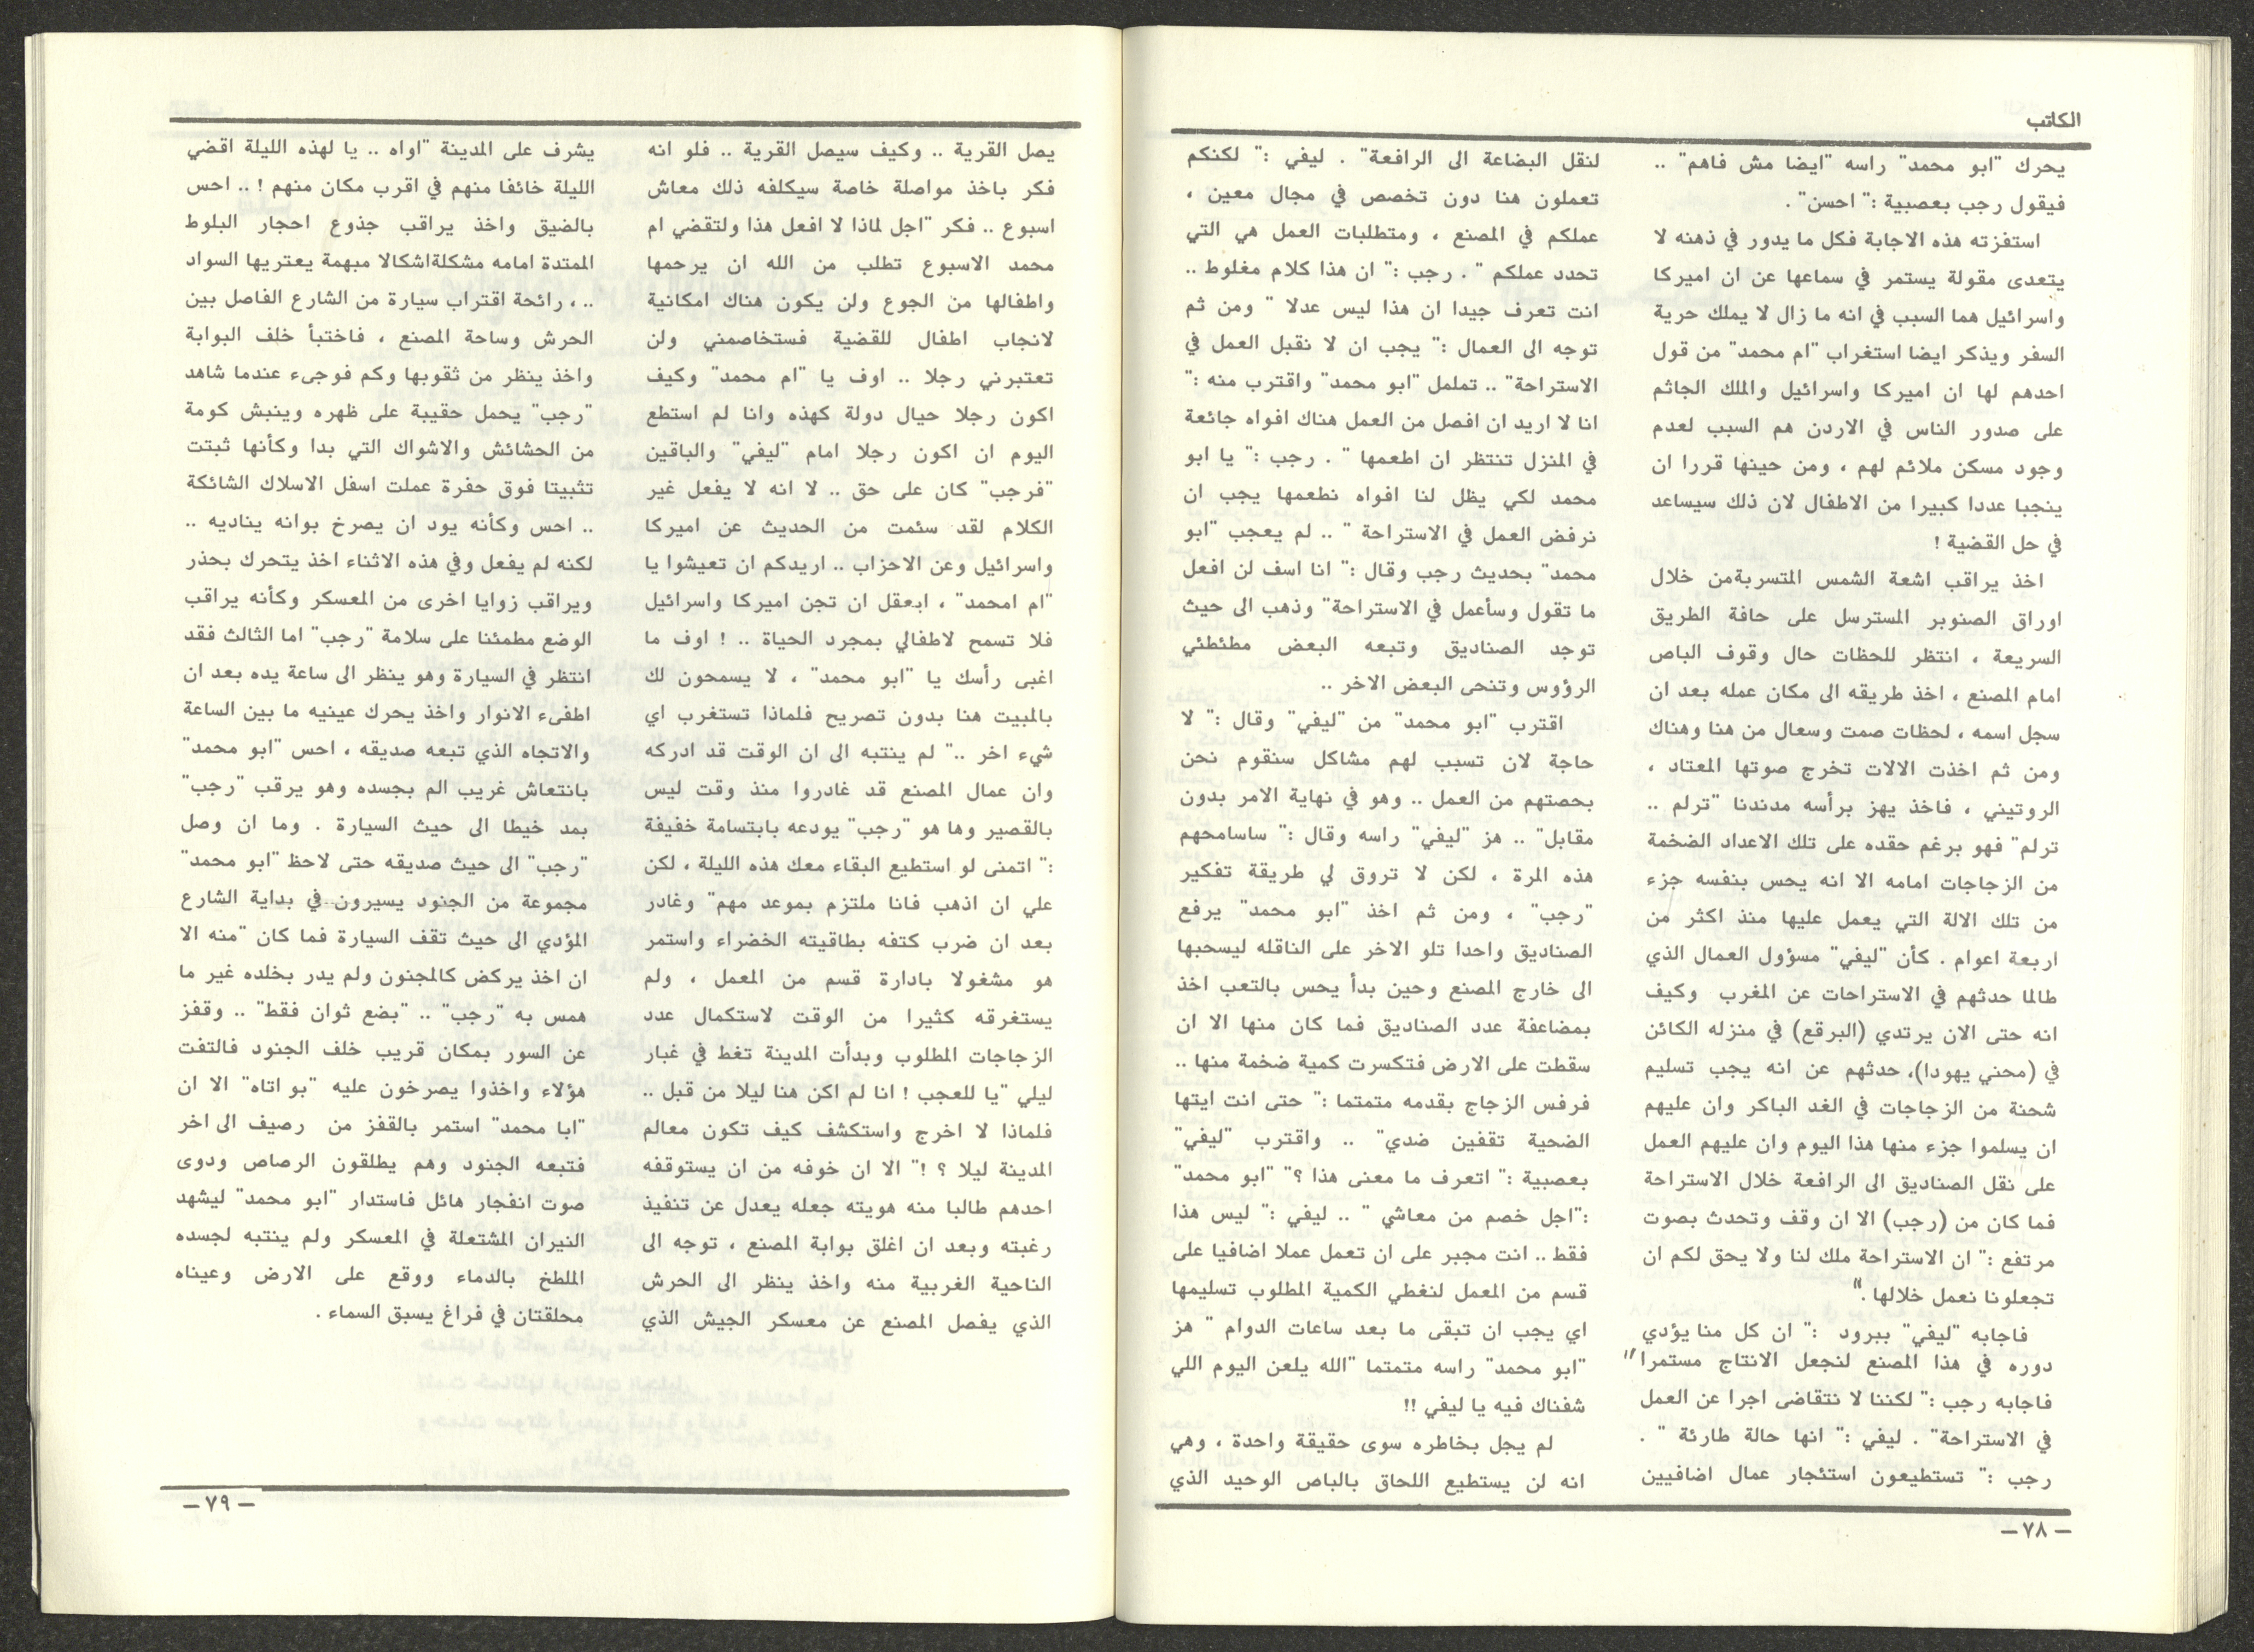 الكاتب
يحرك "ابو محمد" راسه "ايضا مش فاهم" ..
فيقول رجب بعصبية :" احسن" .
استفزته هذه الاجابة فكل ما يدور في ذهنه لا
يتعدى مقولة يستمر في سماعها عن ان اميركا
واسرائيل هما السبب في انه ما زال لا يملك حرية
السفر ويذكر ايضا استغراب "ام محمد" من قول
احدهم لها ان اميركا واسرائيل والملك الجاثم
على صدور الناس في الاردن هم السبب لعدم
وجود مسكن ملائم لهم ، ومن حينها قررا ان
ينجبا عددا كبيرا من الاطفال لان ذلك سيساعد
في حل القضية !
اخذ يراقب اشعة الشمس المتسربةمن خلال
اوراق الصنوبر المسترسل على حافة الطريق
السريعة ، انتظر للحظات حال وقوف الباص
امام المصنع ، اخذ طريقه الى مكان عمله بعد ان
سجل اسمه ، لحظات صمت وسعال من هنا وهناك
ومن ثم اخذت الالات تخرج صوتها المعتاد ،
الروتيني ، فاخذ يهز برأسه مدندنا "ترلم ..
ترلم" فهو برغم حقده على تلك الاعداد الضخمة
من الزجاجات امامه الا انه يحس بنفسه جزء
من تلك الالة التي يعمل عليها منذ اكثر من
اربعة اعوام . كأن "ليفي" مسؤول العمال الذي
طالما حدثهم في الاستراحات عن المغرب وكيف
انه حتى الان يرتدي (البرقع) في منزله الكائن
في (محني يهودا)، حدثهم عن انه يجب تسليم
شحنة من الزجاجات في الغد الباكر وان عليهم
ان يسلموا جزء منها هذا اليوم وان عليهم العمل
على نقل الصناديق الى الرافعة خلال الاستراحة
فما كان من (رجب) الا ان وقف وتحدث بصوت
مرتفع :" ان الاستراحة ملك لنا ولا يحق لكم ان
تجعلونا نعمل خلالها ."
فاجابه "ليفي" ببرود :" ان كل منا يؤدي
دوره في هذا المصنع لنجعل الانتاج مستمرا"
فاجابه رجب :" لكننا لا نتقاضى اجرا عن العمل
في الاستراحة" . ليفي :" انها حالة طارئة " .
رجب :" تستطيعون استئجار عمال اضافيين
لنقل البضاعة الى الرافعة" . ليفي :" لكنكم
تعملون هنا دون تخصص في مجال معين ،
عملكم في المصنع ، ومتطلبات العمل هي التي
تحدد عملكم " . رجب :" ان هذا كلام مغلوط ..
انت تعرف جيدا ان هذا ليس عدلا " ومن ثم
توجه الى العمال :" يجب ان لا نقبل العمل في
الاستراحة" .. تململ "ابو محمد" واقترب منه :"
انا لا اريد ان افصل من العمل هناك افواه جائعة
في المنزل تنتظر ان اطعمها " . رجب :" يا ابو
محمد لكي يظل لنا افواه نطعمها يجب ان
نرفض العمل في الاستراحة " .. لم يعجب "ابو
محمد" بحديث رجب وقال :" انا اسف لن افعل
ما تقول وسأعمل في الاستراحة" وذهب الى حيث
توجد الصناديق وتبعه البعض مطئطئي
الرؤوس وتنحى البعض الاخر ..
اقترب "ابو محمد" من "ليفي" وقال :" لا
حاجة لان تسبب لهم مشاكل سنقوم نحن
بحصتهم من العمل .. وهو في نهاية الامر بدون
مقابل" .. هز "ليفي" راسه وقال :" ساسامحهم
هذه المرة ، لكن لا تروق لي طريقة تفكير
"رجب" ، ومن ثم اخذ "ابو محمد" يرفع
الصناديق واحدا تلو الاخر على الناقله ليسحبها
الى خارج المصنع وحين بدأ يحس بالتعب اخذ
بمضاعفة عدد الصناديق فما كان منها الا ان
سقطت على الارض فتكسرت كمية ضخمة منها ..
فرفس الزجاج بقدمه متمتما :" حتى انت ايتها
الضحية تقفين ضدي" .. واقترب "ليفي"
بعصبية :" اتعرف ما معنى هذا ؟" "ابو محمد"
:"اجل خصم من معاشي " .. ليفي :" ليس هذا
فقط .. انت مجبر على ان تعمل عملا اضافيا على
قسم من المعمل لنغطي الكمية المطلوب تسليمها
اي يجب ان تبقى ما بعد ساعات الدوام " هز
"ابو محمد" راسه متمتما "الله يلعن اليوم اللي
شفناك فيه يا ليفي !!
لم يجل بخاطره سوى حقيقة واحدة ، وهي
انه لن يستطيع اللحاق بالباص الوحيد الذي
— ٧٨ —
يصل القرية .. وكيف سيصل القرية .. فلو انه
فكر باخذ مواصلة خاصة سيكلفه ذلك معاش
اسبوع .. فكر "اجل لماذا لا افعل هذا ولتقضي ام
محمد الاسبوع تطلب من الله ان يرحمها
واطفالها من الجوع ولن يكون هناك امكانية
لانجاب اطفال للقضية فستخاصمني ولن
تعتبرني رجلا .. اوف يا "ام محمد" وكيف
اكون رجلا حيال دولة كهذه وانا لم استطع
اليوم ان اكون رجلا امام "ليفي" والباقين
"فرجب" كان على حق .. لا انه لا يفعل غير
الكلام لقد سئمت من الحديث عن اميركا
واسرائيل وعن الاحزاب .. اريدكم ان تعيشوا يا
"ام امحمد" ، ابعقل ان تجن اميركا واسرائيل
فلا تسمح لاطفالي بمجرد الحياة .. ! اوف ما
اغبى رأسك يا "ابو محمد" ، لا يسمحون لك
بالمبيت هنا بدون تصريح فلماذا تستغرب اي
شيء اخر .." لم ينتبه الى ان الوقت قد ادركه
وان عمال المصنع قد غادروا منذ وقت ليس
بالقصير وها هو "رجب" يودعه بابتسامة خفيفة
:" اتمنى لو استطيع البقاء معك هذه الليلة ، لكن
علي ان اذهب فانا ملتزم بموعد مهم" وغادر
بعد ان ضرب كتفه بطاقيته الخضراء واستمر
هو مشغولا بادارة قسم من المعمل ، ولم
يستغرقه كثيرا من الوقت لاستكمال عدد
الزجاجات المطلوب وبدأت المدينة تغط في غبار
ليلي "يا للعجب ! انا لم اكن هنا ليلا من قبل ..
فلماذا لا اخرج واستكشف كيف تكون معالم
المدينة ليلا ؟ !" الا ان خوفه من ان يستوقفه
احدهم طالبا منه هويته جعله يعدل عن تنفيذ
رغبته وبعد ان اغلق بوابة المصنع ، توجه الى
الناحية الغربية منه واخذ ينظر الى الحرش
الذي يفصل المصنع عن معسكر الجيش الذي
يشرف على المدينة "اواه .. يا لهذه الليلة اقضي
الليلة خائفا منهم في اقرب مكان منهم ! .. احس
بالضيق واخذ يراقب جذوع احجار البلوط
الممتدة امامه مشكلةاشكالا مبهمة يعتريها السواد
.. ، رائحة اقتراب سيارة من الشارع الفاصل بين
الحرش وساحة المصنع ، فاختبأ خلف البوابة
واخذ ينظر من ثقوبها وكم فوجىء عندما شاهد
"رجب" يحمل حقيبة على ظهره وينبش كومة
من الحشائش والاشواك التي بدا وكأنها ثبتت
تثبيتا فوق حفرة عملت اسفل الاسلاك الشائكة
.. احس وكأنه يود ان يصرخ بوانه يناديه ..
لكنه لم يفعل وفي هذه الاثناء اخذ يتحرك بحذر
ويراقب زوايا اخرى من المعسكر وكأنه يراقب
الوضع مطمئنا على سلامة "رجب" اما الثالث فقد
انتظر في السيارة وهو ينظر الى ساعة يده بعد ان
اطفىء الانوار واخذ يحرك عينيه ما بين الساعة
والاتجاه الذي تبعه صديقه ، احس "ابو محمد"
بانتعاش غريب الم بجسده وهو يرقب "رجب"
بمد خيطا الى حيث السيارة . وما ان وصل
"رجب" الى حيث صديقه حتى لاحظ "ابو محمد"
مجموعة من الجنود يسيرون في بداية الشارع
المؤدي الى حيث تقف السيارة فما كان "منه الا
ان اخذ يركض كالمجنون ولم يدر بخلده غير ما
همس به "رجب" .. "بضع ثوان فقط" .. وقفز
عن السور بمكان قريب خلف الجنود فالتفت
هؤلاء واخذوا يصرخون عليه "بو اتاه" الا ان
"ابا محمد" استمر بالقفز من رصيف الى اخر
فتبعه الجنود وهم يطلقون الرصاص ودوى
صوت انفجار هائل فاستدار "ابو محمد" ليشهد
النيران المشتعلة في المعسكر ولم ينتبه لجسده
الملطخ بالدماء ووقع على الارض وعيناه
محلقتان في فراغ يسبق السماء .
— ٧٩ —